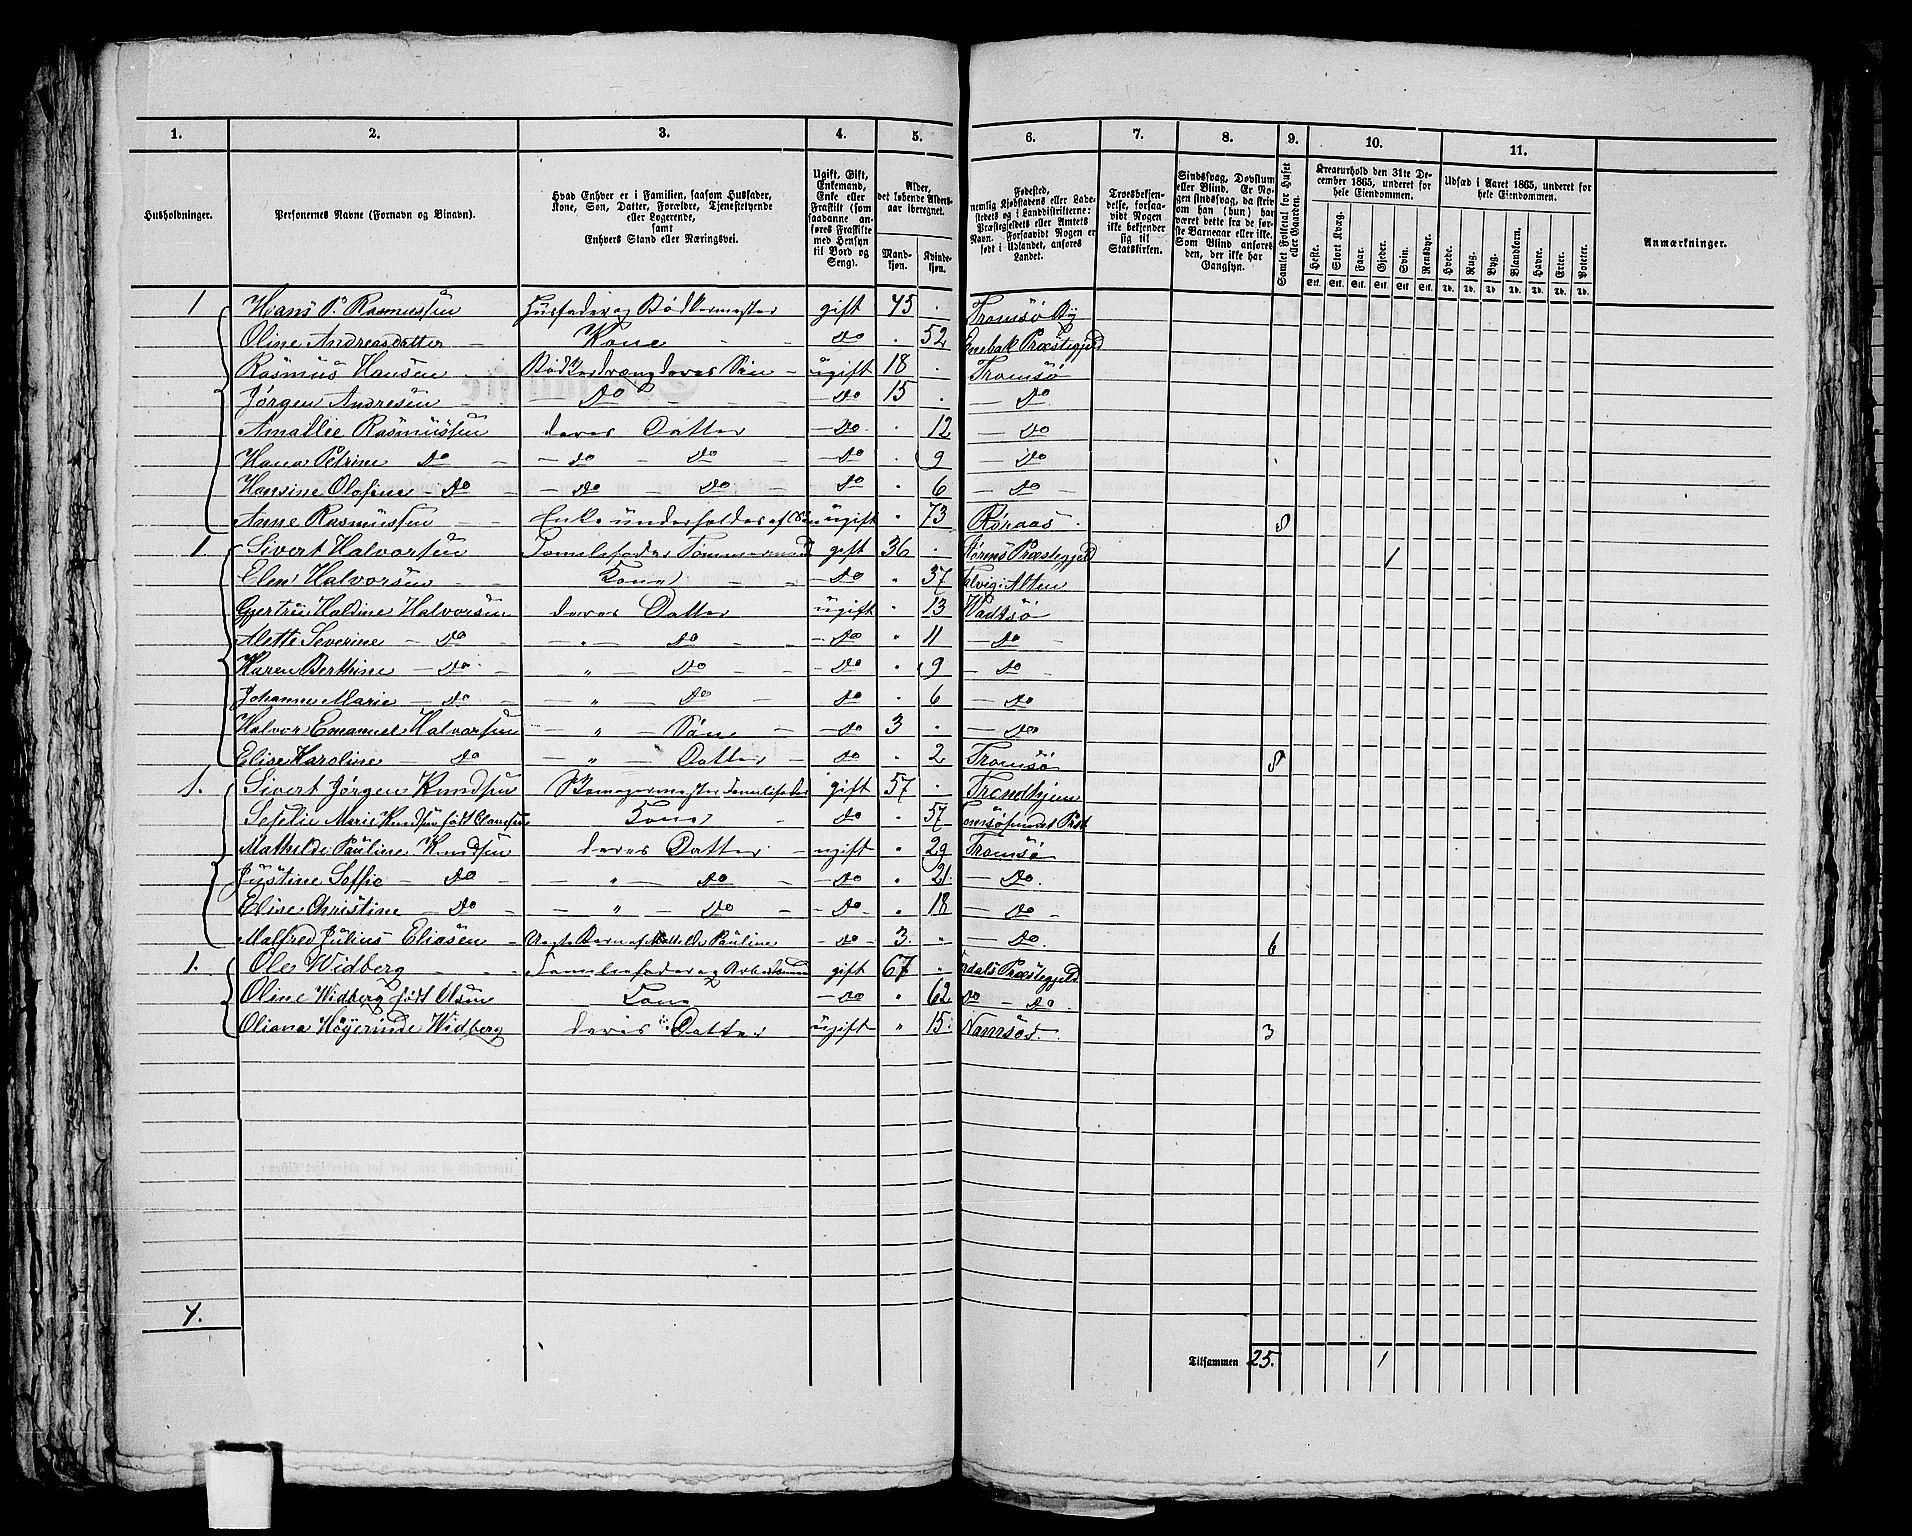 1. 2. 3. 4. 5. 6. 7. 8. 9. 10. 11.
Husholdninger.
Personernes Navne (Fornavn og Binavn).
Hvad Enhver er i Familien, saasom Husfader, Kone, Søn, Datter, Forældre, Tjenestetyende eller Logerende, samt Enhvers Stand eller Næringsvei.
Ugift, Gift, Enkemand, Enke eller Fraskilt (som saadanne anføres Fraskilte med Hensyn til Bord og Seng).
Alder, det løbende Alders-aar iberegnet.
Mandkjøn. Kvindekjøn.
Fødested, nemlig Kjøbstadens eller Ladestedets og i Landdistrikterne: Præstegjeldets eller Amtets Navn. Forsaavidt Nogen er født i Udlandet, anføres Landet.
Troesbekjendelse, forsaavidt Nogen ikke bekjender sig til Statskirken.
Sindssvag, Døvstum eller Blind. Er Nogen sindssvag, da skrives om han (hun) har været dette fra de første Barneaar eller ikke. Som Blind anføres den, der ikke har Gangsyn.
Samlet Folketal for Huset eller Gaarden.
Kreaturhold den 31te December 1865, underet for hele Eiendommen.
Heste. Stort Kvæg. Faar. Gjeder. Svin. Rensdyr.
Udsæd i Aaret 1865, underet for hele Eiendommen.
Hvede. Rug. Byg. Blandkorn. Havre. Erter. Poteter.
Anmærkninger.
1 Hans P. Rasmussen Husfader og Bødkermester gift 45 Tromsø By
Oline Andreasdatter Kone do 52 Enebak Præstegjeld
Rasmus Hansen Bødkerdræng deres Søn ugift 18 Tromsø
Jørgen Andresen do do 15 do
Amalie Rasmussen deres Datter do 12 do
Hana Petrine do do do do 9 do
Hansine Olofine do do do do 6 do
Anne Rasmussen Enke underholdes af Søn ugift 73 Røraas 8
1 Sivert Halvorsen Familiefader Tømmermand gift 36 Størens Præstegjeld 1
Elen Halvorsen Kone do 37 Talvig i Alten
Gjertru Haldine Halvorsen deres Datter ugift 13 Vadsø
Alette Severine do " do do 11 do
Karen Berthine do " do do 9 do
Johanne Marie do " do do 6 do
Halvor Emanuel Halvorsen " Søn do 3 do
Elise Karoline do " Datter do 2 Tromsø 8
1. Sivert Jørgen Knudsen gift 57 Trondhjem
Marie Knudsen født Kone do 57
Mathilde Pauline Knudsen deres Datter ugift 29 Tromsø
Justine Soffie do " do do 21 do
Elise Christine do " do do 18 do
Malfred Julius Eliasen Uægte Barn af Matilde Pauline do 3 do 6
1. Ole Widberg Familiefader og Arbeidsmand gift 67 Præstegjeld
Oline Widberg født Olsen Kone do 62 do do
Oliana Widberg deres Datter ugift " 15 Namsos 3
4.
Tilsammen 25. 1